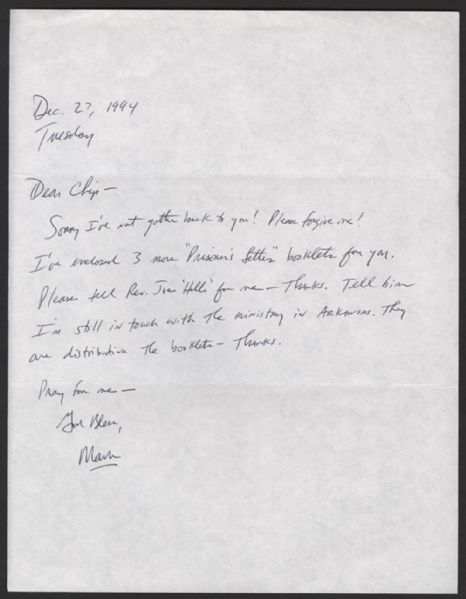 Dec. 27, 1994
Tuesday
Dear Chip—
Sorry I've not gotten back to you! Please forgive me!
I've enclosed 3 more "Prisoner's Letter" booklets for you.
Please tell Rev. "Hello" for me — Thanks. Tell him
I'm still in touch with the ministry in Arkansas. They
are distributing the booklets — Thanks.
Pray for me —
God Bless,
Mark